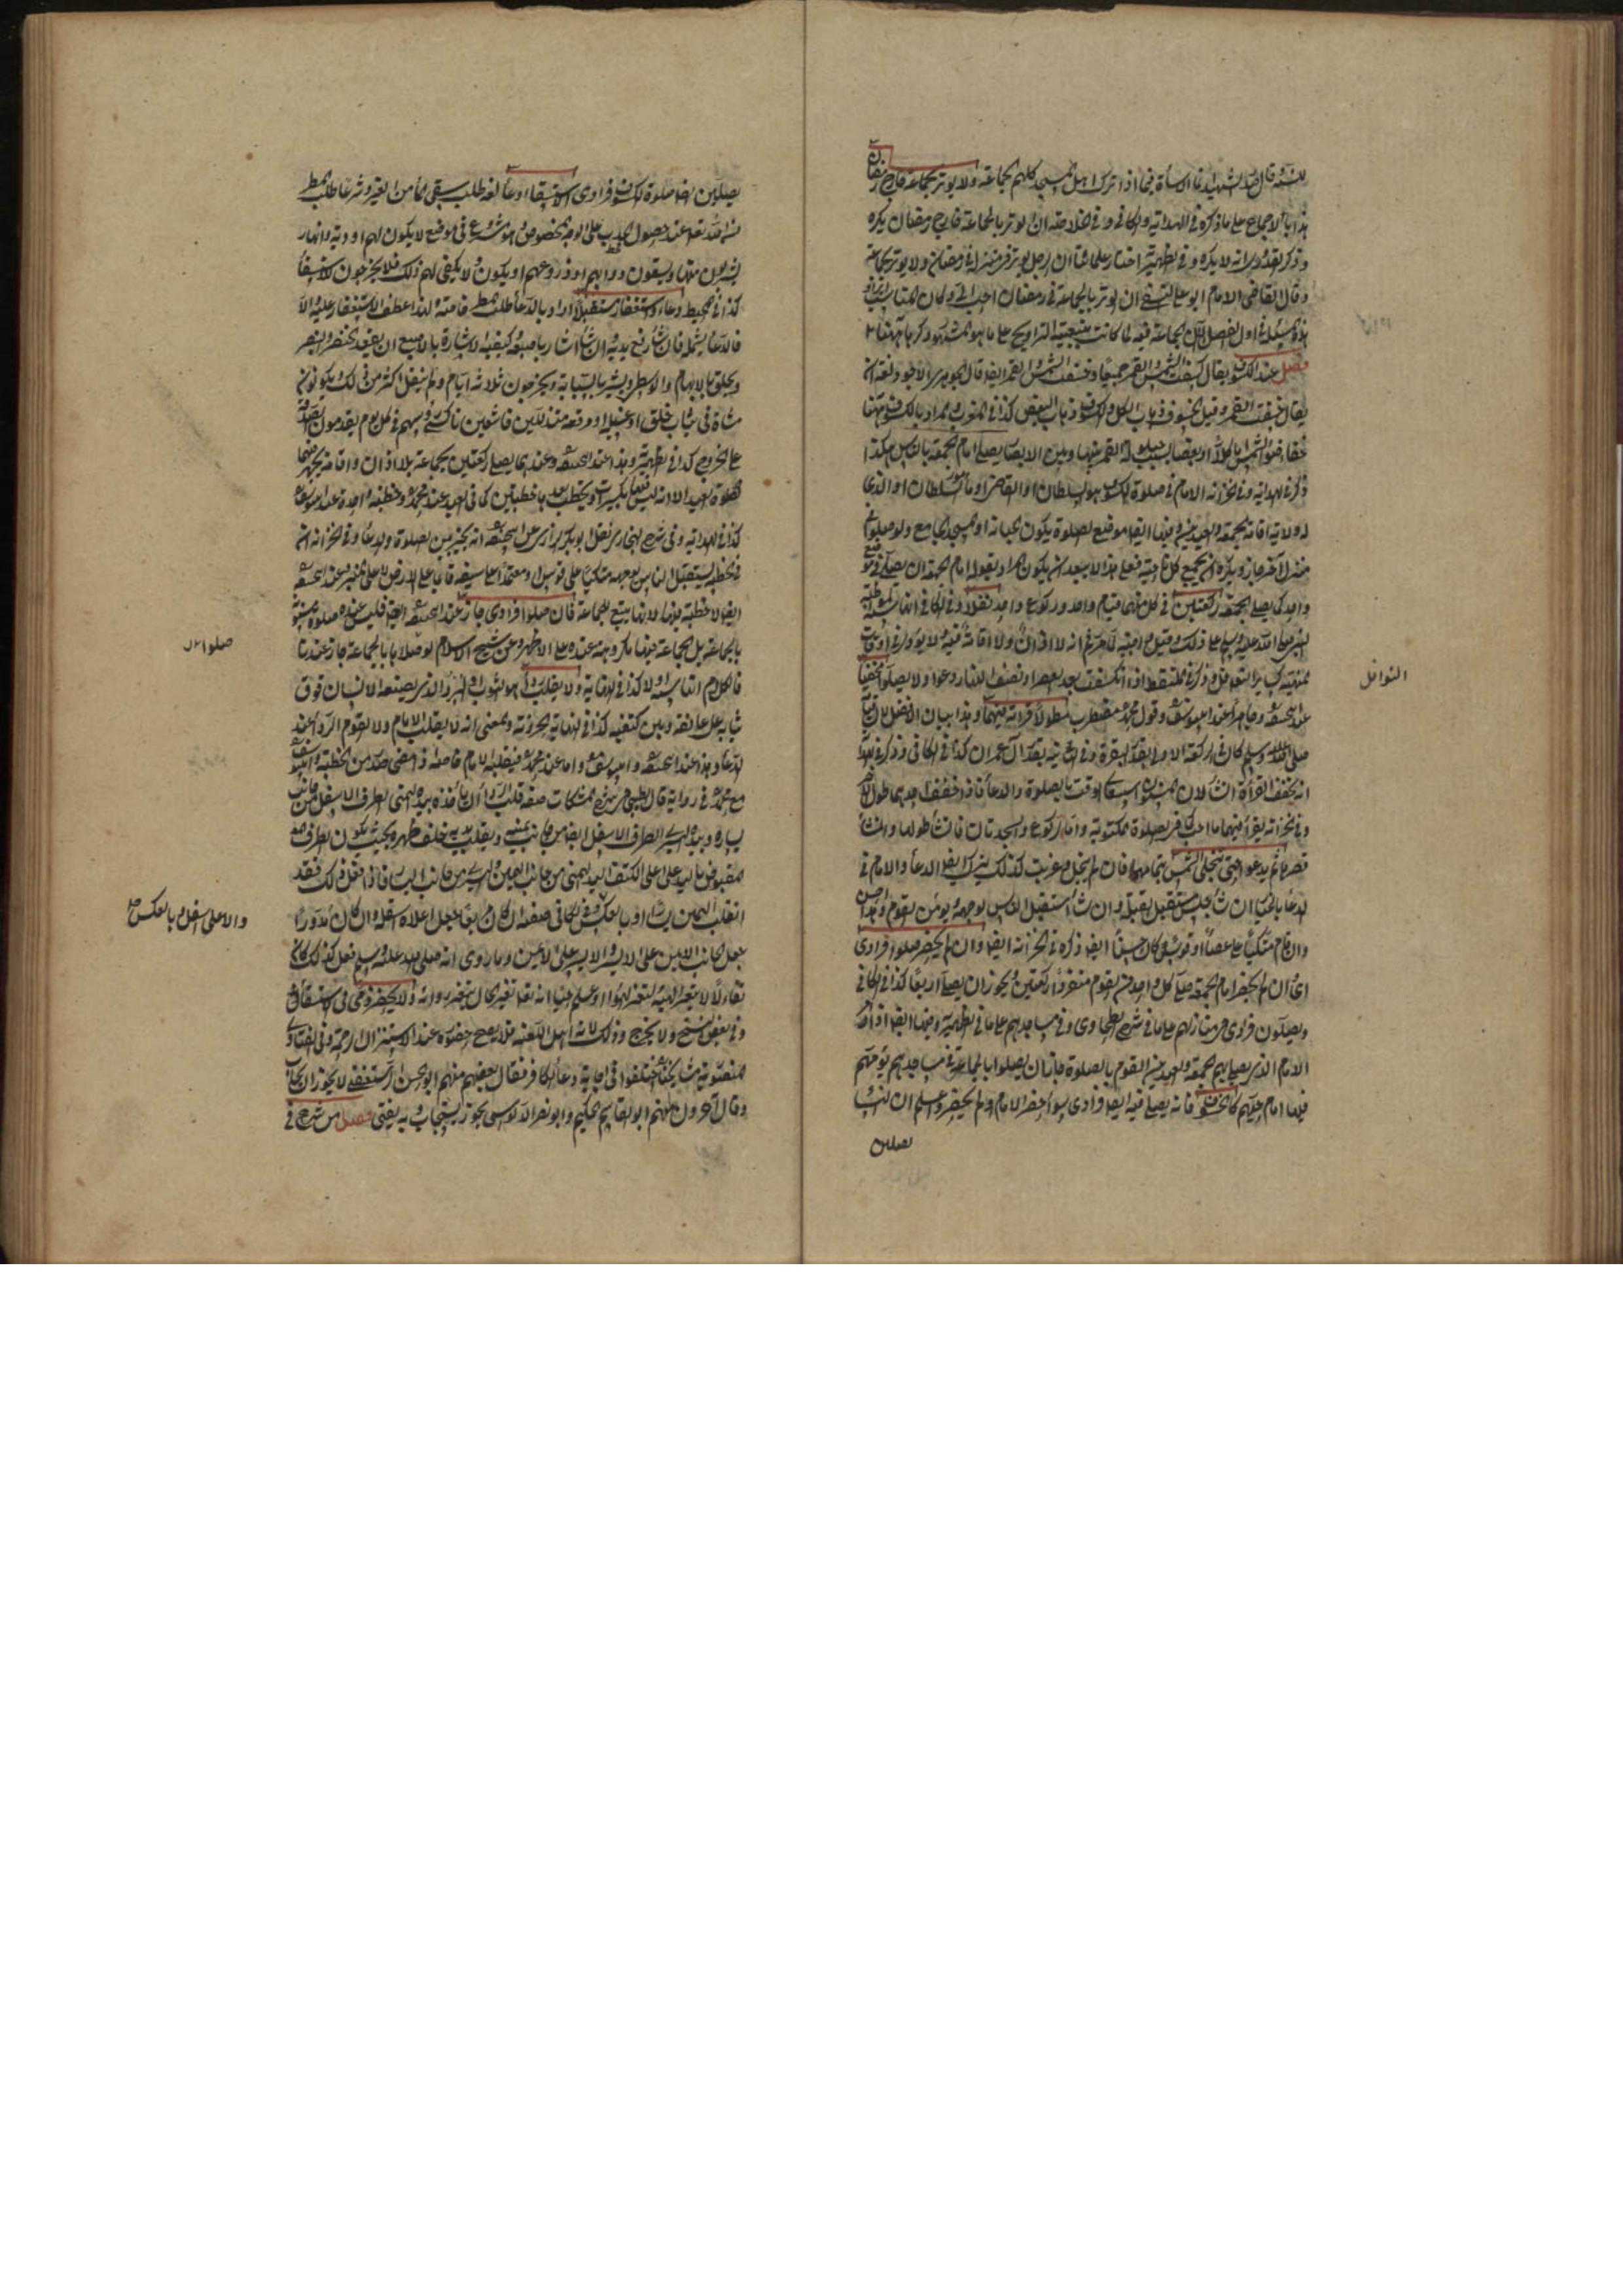 للسنة قال الشهيد اذا ترك اهل المسجد كلهم الجماعة ولا يوتر بجماعة خارج رمضان
هذا بالاجماع على ما ذكره في الهداية والكافي وفي الخلاصة ان الوتر بالجماعة خارج رمضان يكره
وذكر القدوري انه لا يكره وفي الظهيرية اختار علماؤنا ان الرجل يوتر في منزله في رمضان ولا يوتر بجماعة
وقال القاضي الامام ابو علي النسفي ان الوتر بالجماعة في رمضان احب الي وكان المناسب ايراد
هذه المسئلة اول الفصل لكن الجماعة فيه لما كانت بتبعية التراويح على ما هو المشهور ذكرها ههنا
فصل عند الكسوف يقال كسفت الشمس والقمر جميعا وخسفت الشمس والقمر ايضا قال الجوهري الاجود فيه ان
يقال خسف القمر وقيل الخسوف ذهاب الكل والكسوف ذهاب البعض كذا في المغرب والمراد بالكسوف ههنا
خفاء ضوء الشمس كلا او بعضا بسبب حيلولة القمر بينها وبين الابصار يصلي امام الجمعة بالناس هكذا
ذكر في الهداية وفي الخزانة الامام في صلوة الكسوف هو السلطان او القاضي او مأمور السلطان او الذي
له ولاية اقامة الجمعة والعيدين وفيها ايضا موضع الصلوة يكون الجبانة او المسجد الجامع ولو صلوا في
منزل آخر جاز ويكره ان يجمع كل ناحية فعلى هذا لا يبعد ان يكون المراد بقوله امام الجمعة ان يصلي في موضع
واحد كما يصلي الجمعة ركعتين في كل منهما قيام واحد وركوع واحد نفلا وفي الكافي انها سنة لمواظبة
النبي صلى الله عليه وسلم على ذلك وقيل واجبة للامر ثم انه لا اذان ولا اقامة فيه ولا يؤدي في اوقات
المنهية كسائر النوافل وذكر في الملتقط اذا انكسفت بعد العصر او نصف النهار دعوا ولا يصلوا مخفيا
عند ابي حنيفة وجاهرا عند ابي يوسف وقول محمد مضطرب مطولا قراءته فيهما وهذا بيان الافضل لان قيامه
صلى الله عليه وسلم كان في الركعة الاولى بقدر البقرة وفي الثانية بقدر آل عمران كذا في الكافي وذكر في الهداية
انه يخفف القراءة ان شاء لان المسنون استيعاب الوقت بالصلوة والدعاء فاذا خفف احدهما طول الآخر
وفي الخزانة يقرأ فيهما ما احب كما في الصلوة المكتوبة واما الركوع والسجدتان فان شاء طولها وان شاء
قصرها ثم يدعو حتى تنجلي الشمس بتمامها فان لم تنجل وغربت كذلك يترك ايضا الدعاء والامام في
الدعاء بالخيار ان شاء جلس مستقبل القبلة وان شاء استقبل الناس بوجهه ويؤمن القوم وهذا احسن
وان قام متكئا على عصا او قوس كان حسنا ايضا ذكره في الخزانة ايضا وان لم يحضر صلوا فرادى
اي ان لم يحضر امام الجمعة صلى كل واحد من القوم منفردا ركعتين ويجوز ان يصلي اربعا كذا في الكافي
ويصلون فرادى في منازلهم على ما في شرح الطحاوي وفي مساجدهم على ما في الظهيرية وفيها ايضا اذا امر
الامام الذي يصلي بهم الجمعة والعيدين القوم بالصلوة جاز ان يصلوا بالجماعة في مساجدهم يؤمهم
فيها امام حيهم كالخسوف فانه يصلى فيه ايضا فرادى سواء حضر الامام او لم يحضر واعلم ان النساء
يصلين
النوافل
يصلين ايضا صلوة الكسوف فرادى الاستسقاء ودعاء لغة طلب سقي الماء من الغير وشرعا طلب المطر
من الله تعالى عند حصول الجدب على الوجه المخصوص وهو مشروع في موضع لا يكون لهم اودية وانهار
يشربون منها ويسقون دوابهم او زروعهم او يكون ولا يكفي لهم ذلك فلا يخرجون للاستسقاء
كذا في المحيط دعاء واستغفار مستقبلا اراد بالدعاء طلب المطر خاصة لهذا عطف الاستغفار عليه والا
فالدعاء يشمله فان شاء رفع يديه وان شاء اشار باصبعه وكيفية الاشارة بالاصبع ان يعقد الخنصر والبنصر
ويحلق الابهام والوسطى ويشير بالسبابة ويخرجون ثلاثة ايام ولم ينقل اكثر من ذلك ويكونون
مشاة في ثياب خلق او غسيل او مرقعة متذللين خاشعين ناكسي رؤسهم في كل يوم يقدمون الصدقة
على الخروج كذا في الظهيرية وهذا عند ابي حنيفة وعندهما يصلي ركعتين بجماعة بلا اذان واقامة يجهر فيهما
كصلوة العيد الا انه ليس فيها تكبيرات ويخطب بعدها خطبتين كما في العيد عند محمد وخطبة واحدة عند ابي يوسف
كذا في الهداية وفي شرح البخاري نقل ابو بكر الرازي عن ابي حنيفة انه يخير بين الصلوة والدعاء وفي الخزانة انه
في الخطبة يستقبل الناس بوجهه متكئا على قوس او معتمدا على سيفه قائما على الارض لا على المنبر وعند ابي حنيفة
ايضا لا خطبة فيها لانها تتبع الجماعة فان صلوا فرادى جاز عند ابي حنيفة ايضا فليس عنده صلوة مسنونة
بالجماعة بل الجماعة فيها مكروهة عنده على الاظهر وعن شيخ الاسلام لو صلاها بالجماعة جاز عندنا
فالكلام انها سنة او لا كذا في النهاية ولا يقلب رداء هو الثوب او البرد الذي يضعه الانسان فوق
ثيابه على عاتقه وبين كتفيه كذا في النهاية الجزرية والمعنى انه لا يقلب الامام ولا القوم الرداء عند
الدعاء وهذا عند ابي حنيفة وابي يوسف واما عند محمد فيقلبه الامام خاصة اذا مضى صدر من الخطبة وابو يوسف
مع محمد في رواية قال الطيبي في شرح المشكات صفة قلب الرداء ان يأخذ بيده اليمنى الطرف الاسفل من جانب
يساره وبيده اليسرى الطرف الاسفل ايضا من جانب يمينه ويقلب يديه خلف ظهره بحيث يكون الطرف
المقبوض باليد على اعلى الكتف اليد اليمنى من جانب اليمين واليسرى من جانب اليسار فاذا فعل ذلك فقد
انقلب اليمين يسارا وبالعكس وفي الكافي صفته ان كان مربعا جعل اعلاه اسفله وان كان مدورا
جعل الجانب الايمن على الايسر والايسر على الايمن وما روي انه صلى الله عليه وسلم فعل كذلك كان
تفاءلا لا يتغير الهيئة لتغير الهواء او علم حينئذ انه تعالى تغير الحال بتغير ردائه ولا يحضر ذمي في الاستسقاء
وفي بعض النسخ ولا يخرج وذلك لانه اهل اللعنة فلا يصح حضوره عند الاستنزال الرحمة وفي الفتاوى
المنصورية مشايخنا اختلفوا في اجابة دعاء الكافر فقال بعضهم منهم ابو الحسن الرستغفني لا يجوز ان يجاب
وقال آخرون منهم ابو القاسم الحكيم وابو نصر الدبوسي يجوز يستجاب وبه يفتى فصل من شرع في
صلواته
والاعلى اسفل وبالعكس صح